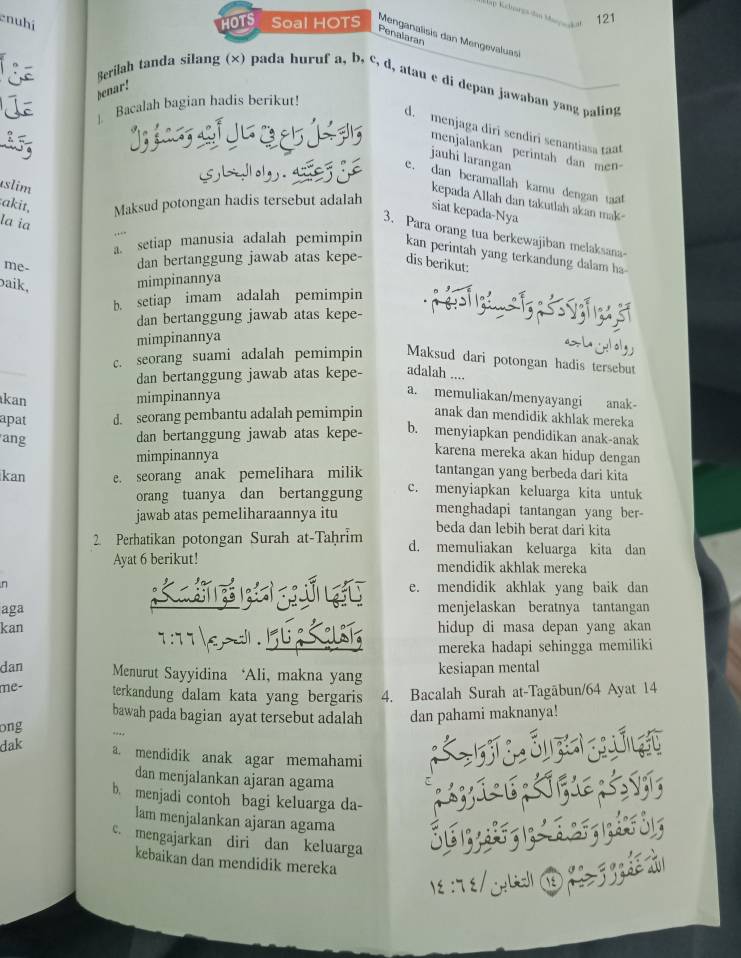 121
HOTS Soal HOTS
Menganalisis dan Mengevaluasi
Penalaran
Berilah tanda silang (×) pada huruf a, b, c, d, atau e di depan jawaban yang paling
benar!
1. Bacalah bagian hadis berikut!
وَالرَّجُلُ رَاعٍ فِي مَالِ أَبِيْهِ وَمَسْئُوْلٌ
عَنْ رَعِيَّتِهِ . رواه البخاري
Maksud potongan hadis tersebut adalah
....
a. setiap manusia adalah pemimpin
dan bertanggung jawab atas kepe-
mimpinannya
b. setiap imam adalah pemimpin
dan bertanggung jawab atas kepe-
mimpinannya
c. seorang suami adalah pemimpin
dan bertanggung jawab atas kepe-
mimpinannya
d. seorang pembantu adalah pemimpin
dan bertanggung jawab atas kepe-
mimpinannya
e. seorang anak pemelihara milik
orang tuanya dan bertanggung
jawab atas pemeliharaannya itu
2. Perhatikan potongan Surah at-Taḥrīm
Ayat 6 berikut!
يٰٓاَيُّهَا الَّذِيْنَ اٰمَنُوْا قُوْٓا اَنْفُسَكُمْ
وَاَهْلِيْكُمْ نَارًا . التحريم\٦٦: ٦
Menurut Sayyidina ‘Ali, makna yang
terkandung dalam kata yang bergaris
bawah pada bagian ayat tersebut adalah
....
a. mendidik anak agar memahami
dan menjalankan ajaran agama
b. menjadi contoh bagi keluarga da-
lam menjalankan ajaran agama
c. mengajarkan diri dan keluarga
kebaikan dan mendidik mereka
d. menjaga diri sendiri senantiasa taat
menjalankan perintah dan men-
jauhi larangan
e. dan beramallah kamu dengan taat
kepada Allah dan takutlah akan mak-
siat kepada-Nya
3. Para orang tua berkewajiban melaksana-
kan perintah yang terkandung dalam ha-
dis berikut:
أَكْرِمُوْا أَوْلَادَكُمْ وَأَحْسِنُوْا أَدَبَهُمْ .
رواه ابن ماجه
Maksud dari potongan hadis tersebut
adalah ....
a. memuliakan/menyayangi anak-
anak dan mendidik akhlak mereka
b. menyiapkan pendidikan anak-anak
karena mereka akan hidup dengan
tantangan yang berbeda dari kita
c. menyiapkan keluarga kita untuk
menghadapi tantangan yang ber-
beda dan lebih berat dari kita
d. memuliakan keluarga kita dan
mendidik akhlak mereka
e. mendidik akhlak yang baik dan
menjelaskan beratnya tantangan
hidup di masa depan yang akan
mereka hadapi sehingga memiliki
kesiapan mental
4. Bacalah Surah at-Tagābun/64 Ayat 14
dan pahami maknanya!
يٰٓاَيُّهَا الَّذِيْنَ اٰمَنُوْٓا اِنَّ مِنْ اَزْوَاجِكُمْ
وَاَوْلَادِكُمْ عَدُوًّا لَّكُمْ فَاحْذَرُوْهُمْ ۚ
وَاِنْ تَعْفُوْا وَتَصْفَحُوْا وَتَغْفِرُوْا فَاِنَّ
اللّٰهَ غَفُوْرٌ رَّحِيْمٌ ﴿١٤﴾ التغابن/٦٤: ١٤